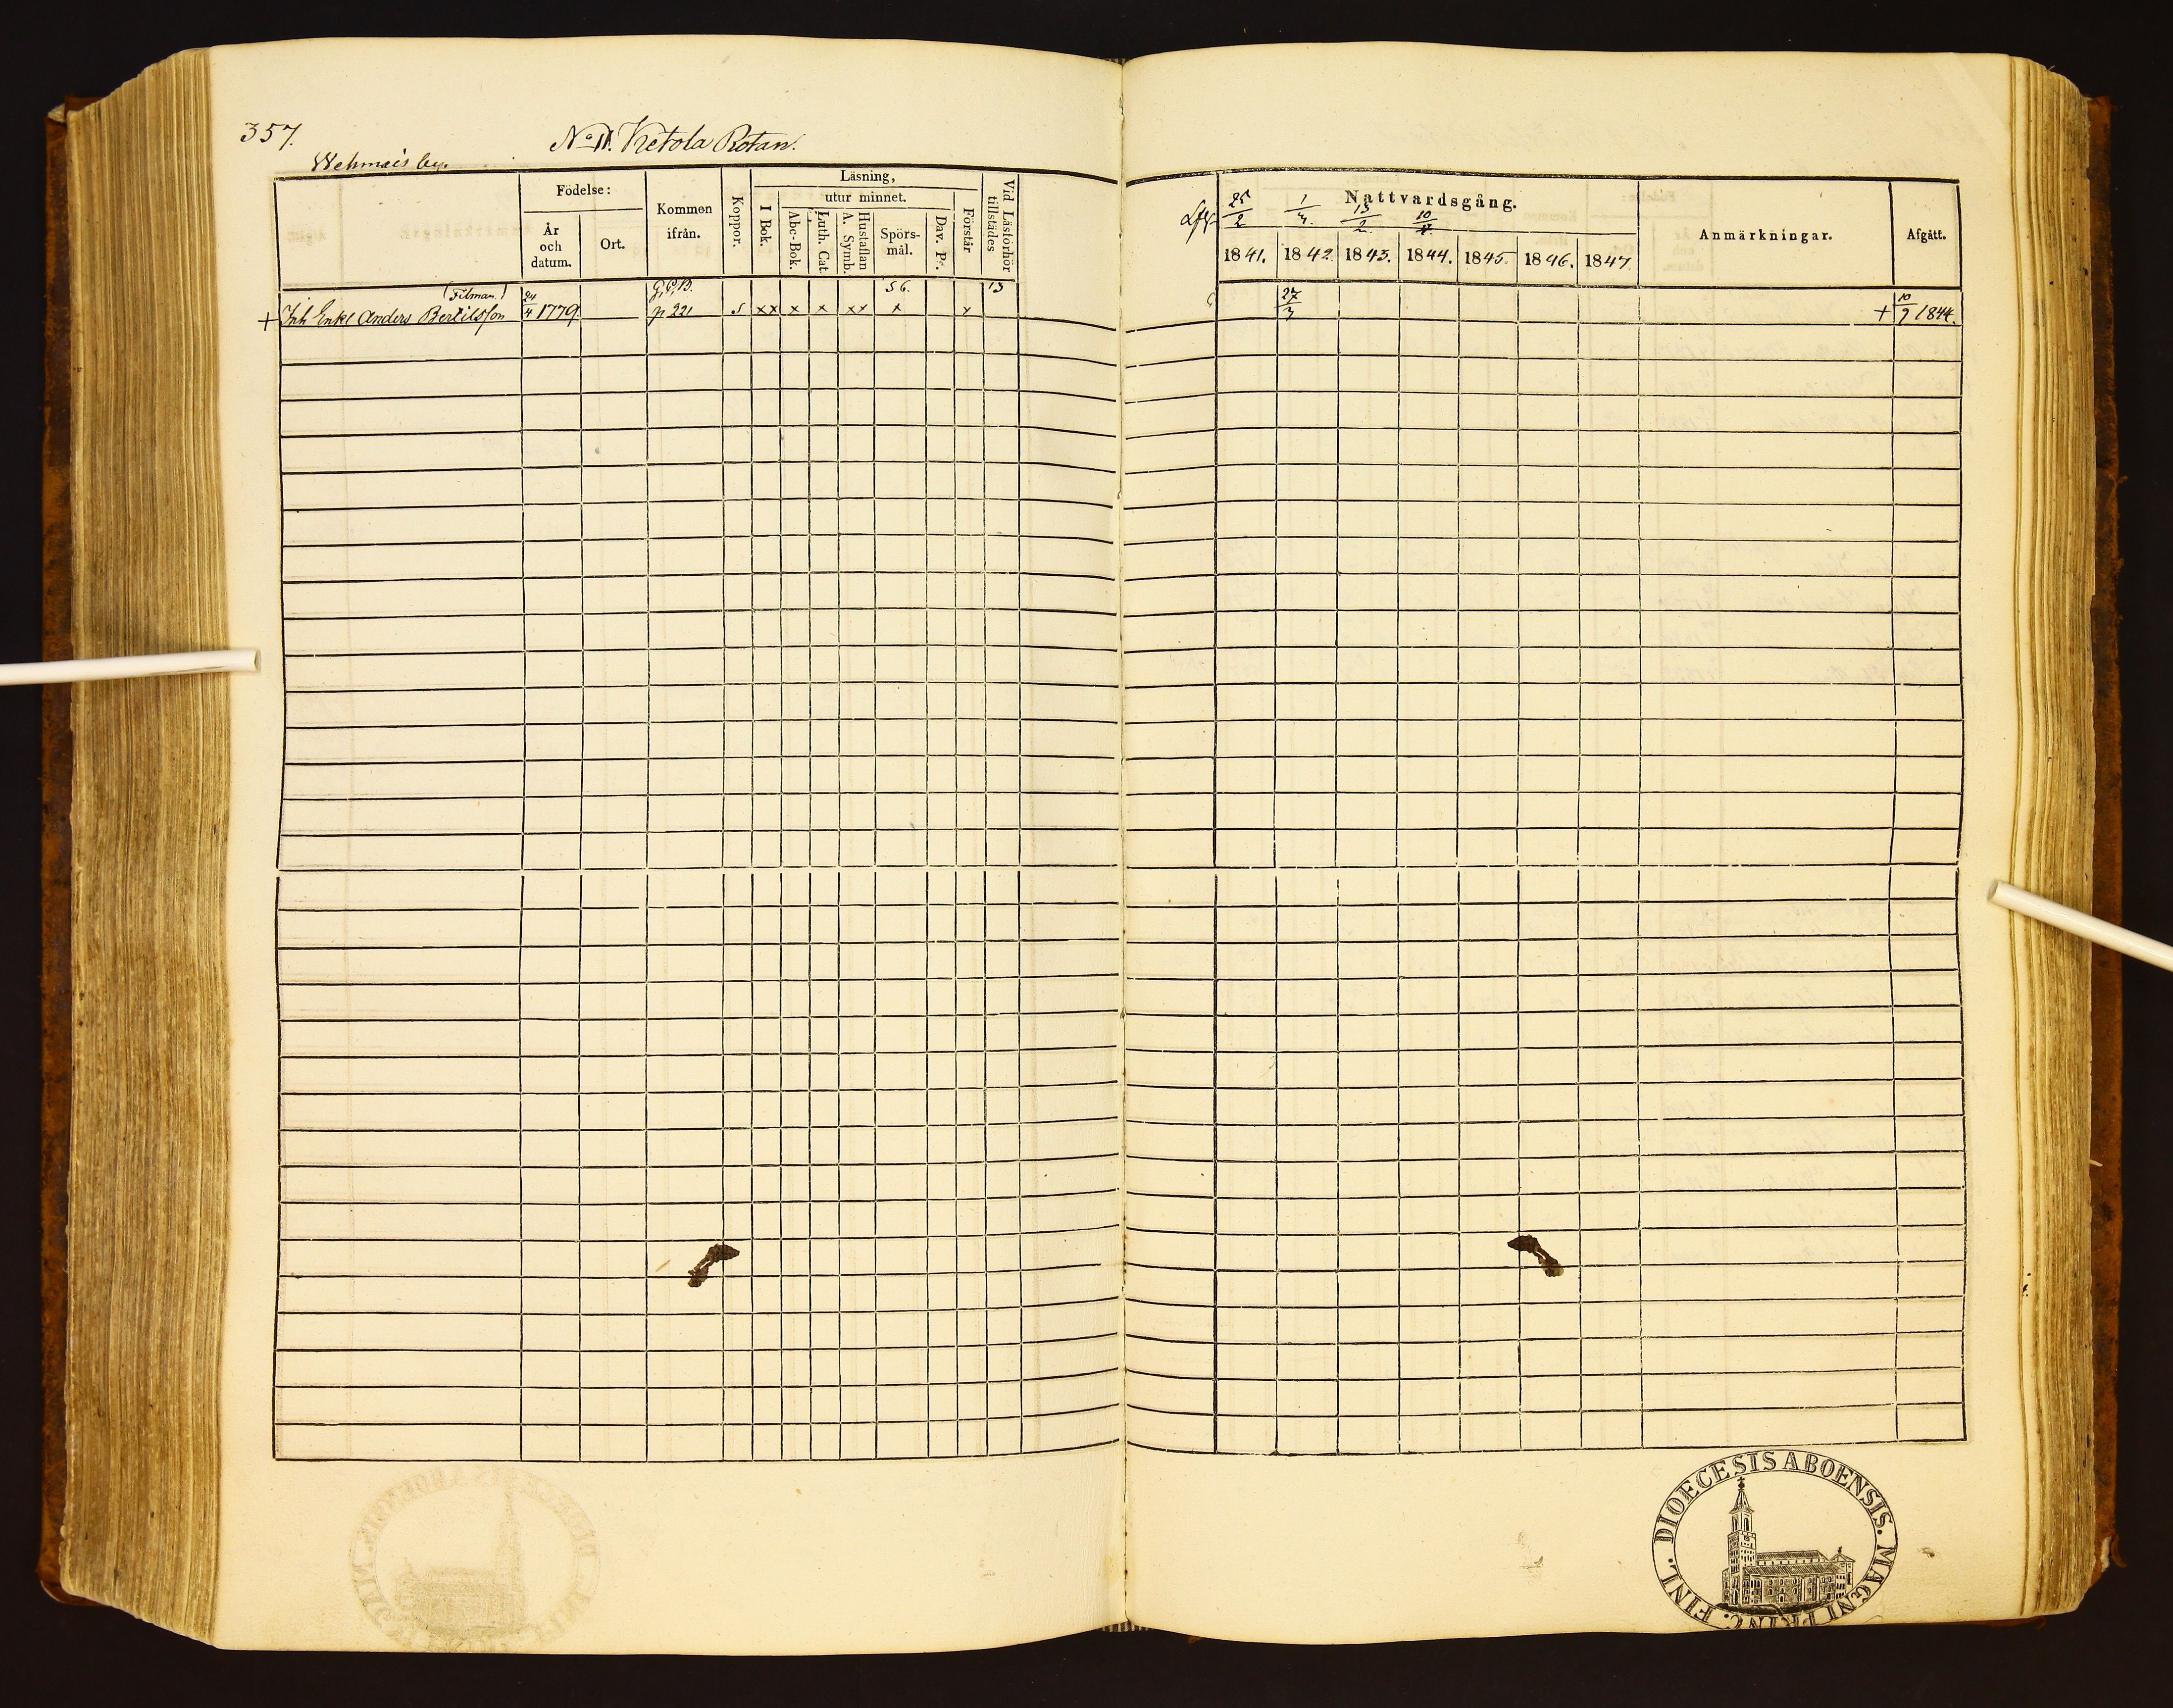 357.
No II. Ketola Rotan.
Wehmais by.
Födelse: År och datum. Ort.
Kommen ifrån.
Koppor.
Läsning,
I Bok.
utur minnet.
Abc-Bok.
Luth. Cat.
Hustaflan A. Symb.
Spörs-mål.
Dav. Ps.
Förstår
Vid Läsförhör tillstädes
Nattvardsgång.
25/2 1/3. 13/2 10/
1841. 1842. 1843. 1844. 1845. 1846. 1847
Anmärkningar.
Afgått.
(Filman) G.C.B. 56. 13
+ Inh Enkl Anders Bertilsson 24/4 1779 p 221 s xx x x xx x x 27/3 + 10/7 1844.
DIOECESIS ABOENSIS. MAGNI PRINC. FINL.